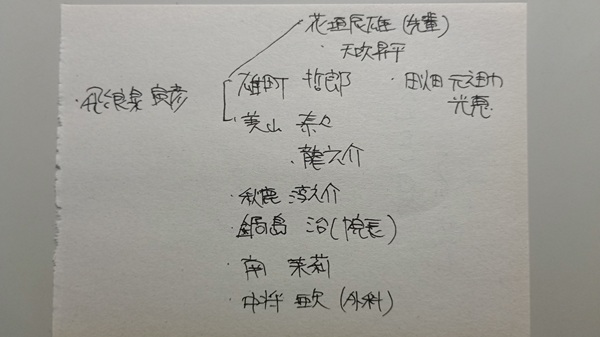 花垣辰雄(先輩)
・天吹昇平
雄町 哲郎
・田畑 元祐
光恵
・飛良泉 寅彦
美山 奈々
・龍之介
・秋鹿 淳之介
・鍋島 治(院長)
・南 茉莉
・中将 亜矢(外科)